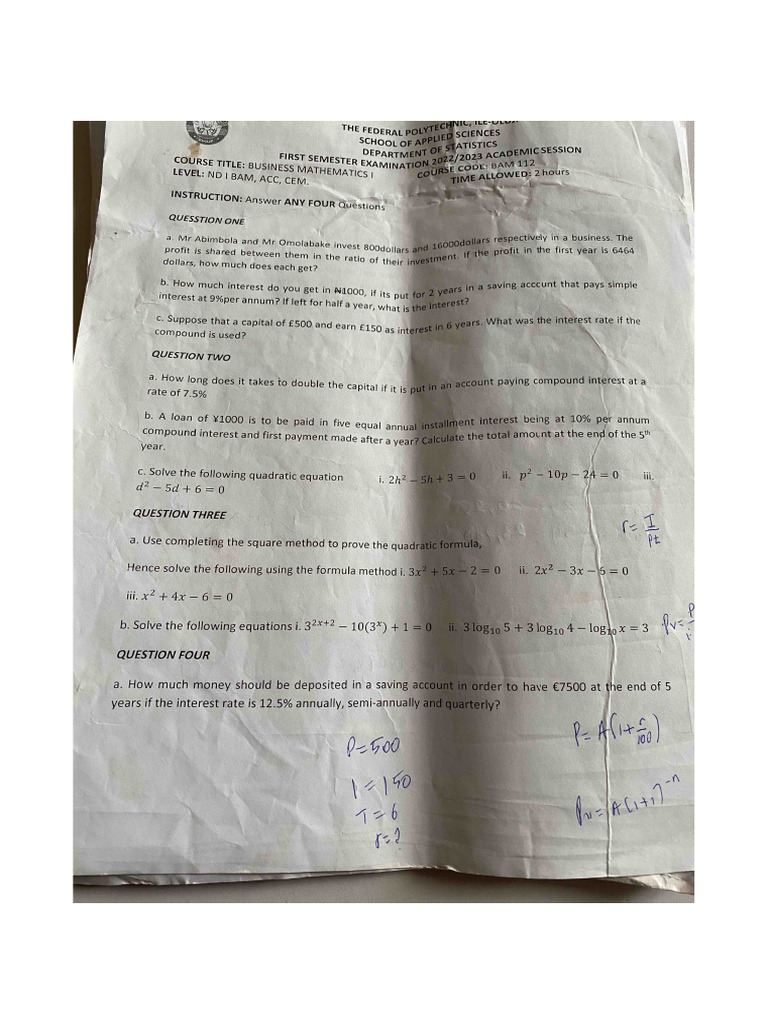 THE FEDERAL POLYTECHNIC,
SCHOOL OF APPLIED SCIENCES
DEPARTMENT OF STATISTICS
FIRST SEMESTER EXAMINATION 2022/2023 ACADEMIC SESSION
COURSE TITLE: BUSINESS MATHEMATICS I COURSE CODE: BAM 112
LEVEL: ND I BAM, ACC, CEM. TIME ALLOWED: 2 hours
INSTRUCTION: Answer ANY FOUR Questions
QUESSTION ONE
a. Mr Abimbola and Mr Omolabake invest 800dollars and 16000dollars respectively in a business. The
profit is shared between them in the ratio of their investment. If the profit in the first year is 6464
dollars, how much does each get?
b. How much interest do you get in ₦1000, if its put for 2 years in a saving account that pays simple
interest at 9%per annum? If left for half a year, what is the interest?
c. Suppose that a capital of £500 and earn £150 as interest in 6 years. What was the interest rate if the
compound is used?
QUESTION TWO
a. How long does it takes to double the capital if it is put in an account paying compound interest at a
rate of 7.5%
b. A loan of ¥1000 is to be paid in five equal annual installment interest being at 10% per annum
compound interest and first payment made after a year? Calculate the total amount at the end of the 5th
year.
c. Solve the following quadratic equation i. 2h² − 5h + 3 = 0 ii. p² − 10p − 24 = 0 iii.
d² − 5d + 6 = 0
QUESTION THREE
r = I
Pt
a. Use completing the square method to prove the quadratic formula,
Hence solve the following using the formula method i. 3x² + 5x − 2 = 0 ii. 2x² − 3x − 6 = 0
iii. x² + 4x − 6 = 0
b. Solve the following equations i. 3²ˣ⁺² − 10(3ˣ) + 1 = 0 ii. 3 log₁₀ 5 + 3 log₁₀ 4 − log₁₀ x = 3 Pv = P
i
QUESTION FOUR
a. How much money should be deposited in a saving account in order to have €7500 at the end of 5
years if the interest rate is 12.5% annually, semi-annually and quarterly?
P = A(1 + r/100)
P = 500
I = 150
Pv = A(1+i)⁻ⁿ
T = 6
r = ?